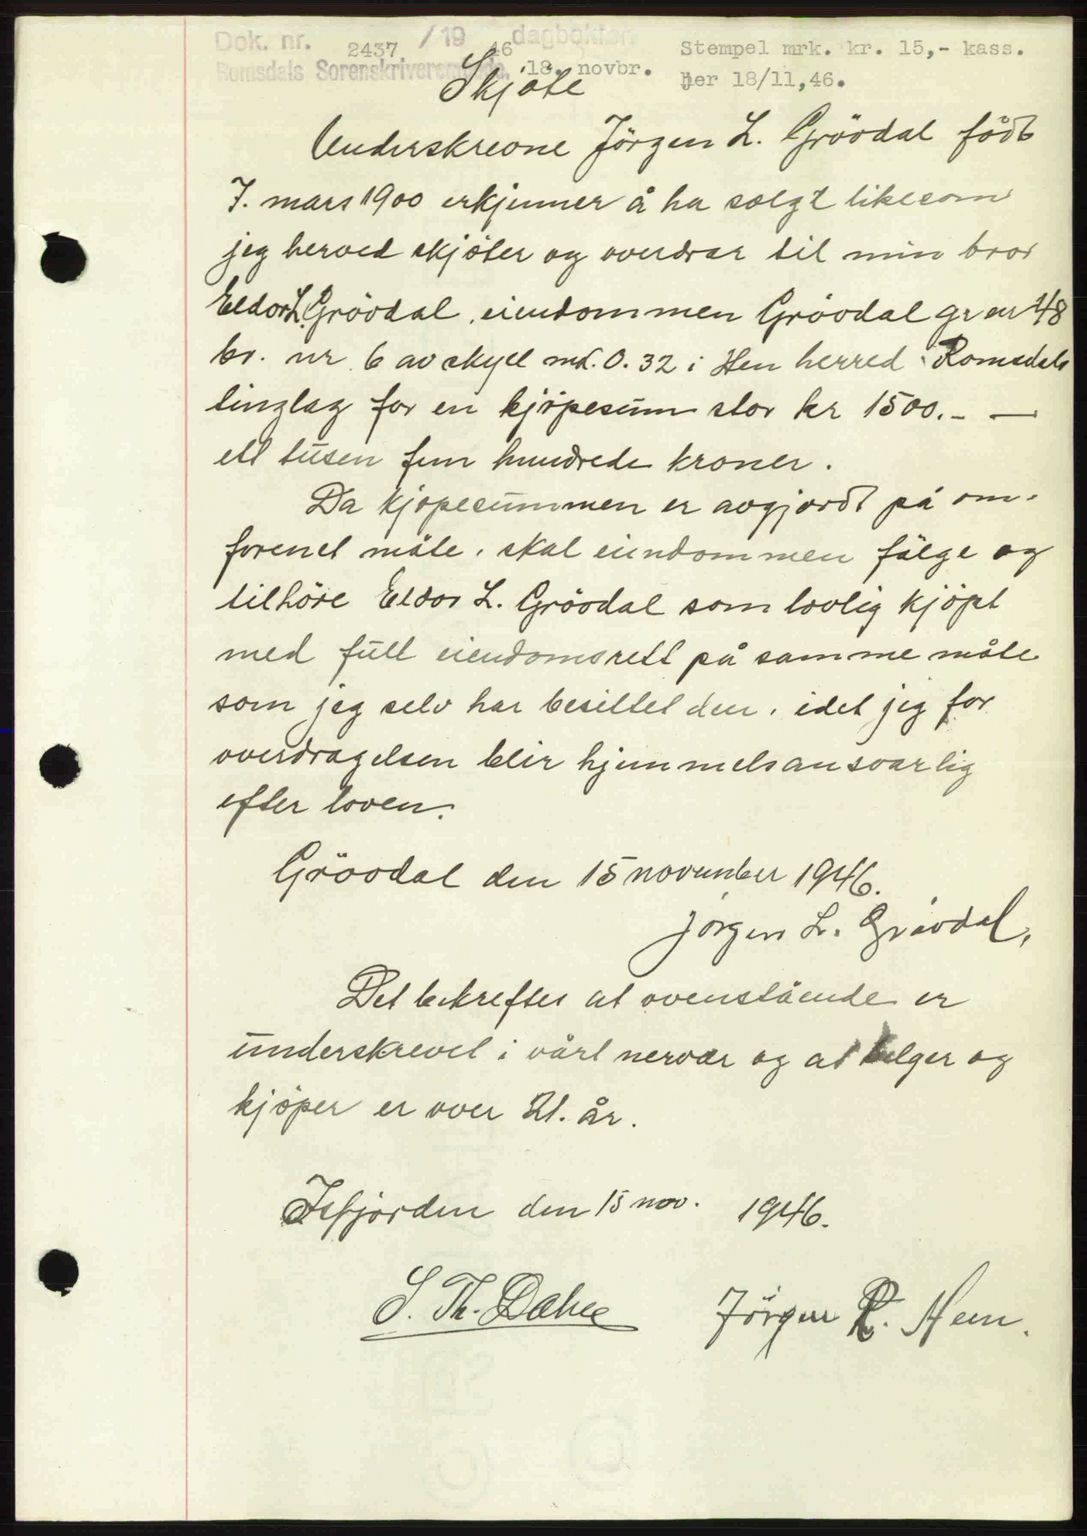 Dok. nr. 2437 / 19 46 dagbokføn
Romsdals Sorenskriverembede, 18. novbr.
Stempel mrk. kr. 15,- kass.
her 18/11,46.
Skjöte
Underskrevne Jörgen L. Grövdal född
7. mars 1900 erkjenner å ha solgt likesom
jeg herved skjöter og overdrar til min bror
Eldor L. Grövdal, eiendommen Grövdal gr nr 48
br. nr 6 av skyld mk. 0.32 i Hen herred i Romsdals
tinglag for en kjöpesum stor kr 1500.- —
ett tusen fem hundrede kroner.
Da kjöpesummen er avgjordt på om-
forenet måte, skal eiendommen fölge og
tilhöre Eldor L. Grövdal som lovlig kjöpt
med full eiendomsrett på samme måte
som jeg selv har besittet den, idet jeg for
overdragelsen blir hjemmelsansvarlig
efter loven.
Grövdal den 15 november 1946.
Jörgen L. Grövdal,
Det bekreftes at ovenstående er
underskrevet i vårt nervær og at selger og
kjöper er over 21. år.
Isfjorden den 15 nov. 1946.
S. Th. Dahle Jörgen R. Hem.